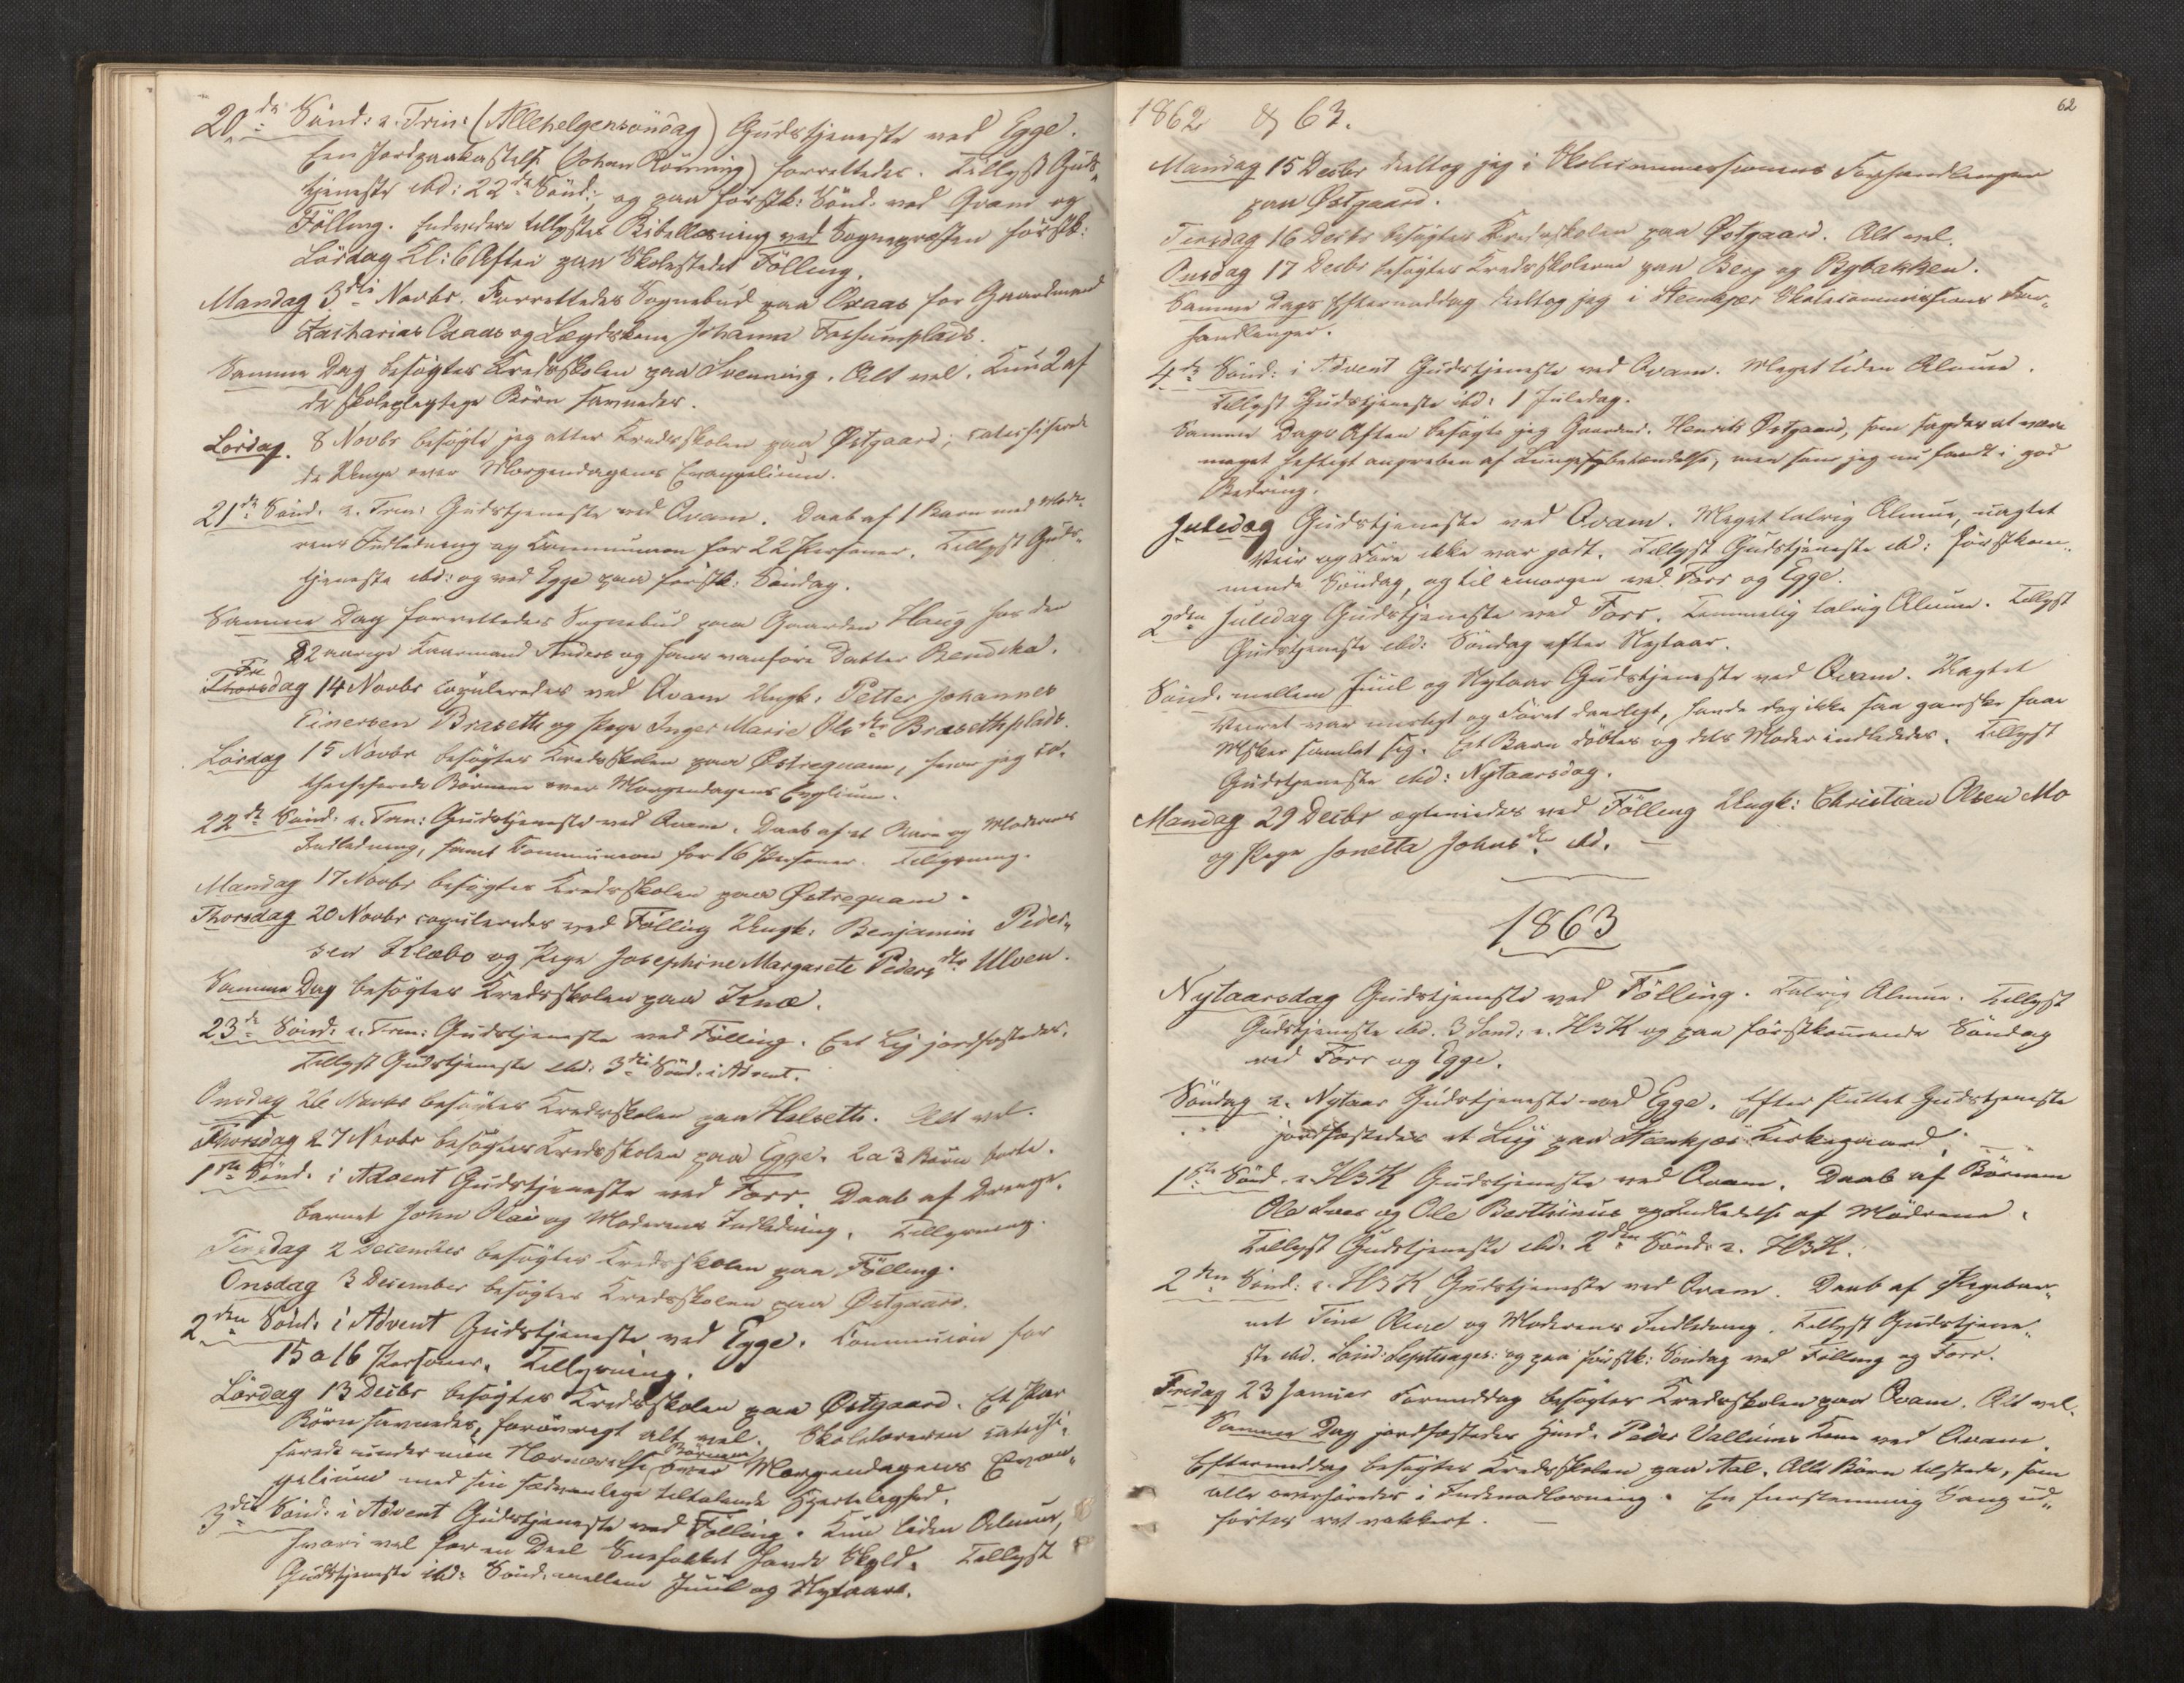 20de Sönd: e. Trin: (Allehelgensöndag) Gudstjeneste ved Egge.
Een Jordpaakastelse (Johan Rönning) forrettedes. Tillyst Guds-
tjeneste ibd: 22de Sönd:, og paa förstk: Sönd: ved Qvam og
Fölling. Endvidere tillystes Bibellæsning ved Sognepræsten förstk:
Lördag Kl: 6 Aften paa Skolestedet Fölling.
Mandag 3die Novbr. Forrettedes Sognebud paa Oxaas for Gaardmand
Zacharias Oxaas og Lægdskone Johanna Fossumplads.
Samme Dag besögtes Kredsskolen paa Svenning. Alt vel. Kun 2 af
de skolepligtige Börn savnedes.
Lördag 8 Novbr besögte jeg atter Kredsskolen paa Östgaard; catechiserede
de Unge over Morgendagens Evangelium.
21de Sönd. e. Trin: Gudstjeneste ved Qvam. Daab af 1 Barn med Mode-
rens Indledning og Communion for 22 Personer. Tillyst Guds-
tjeneste ibd: og ved Egge paa förstk: Söndag.
Samme Dag forrettedes Sognebud paa Gaarden Haug hos den
82 aarige Kaarmand Anders og hans vanföre Datter Bendicka.
Fredag 14 Novbr copuleredes ved Qvam Ungk. Petter Johannes
Einersen Braseth og Pige Inger Marie Olsdtr Brasethplads.
Lördag 15 Novbr besögtes Kredsskolen paa Östreqvam, hvor jeg ca-
thechiserede Börnene over Morgendagens Evglium.
22de Sönd. e. Trin: Gudstjeneste ved Qvam. Daab af et Barn og Moderens
Indledning, samt Communion for 16 Personer. Tillysning.
Mandag 17 Novbr besögtes Kredsskolen paa Östreqvam.
Thorsdag 20 Novbr copuleredes ved Fölling Ungk: Benjamin Peder-
sen Klæbo og Pige Josephine Margarete Pedersdtr Ulven.
Samme Dag besögtes Kredsskolen paa Knæ.
23de Sönd: e. Trin: Gudstjeneste ved Fölling. Eet Lig jordfæstedes.
Tillyst Gudstjeneste ibd: 3die Sönd. i Advent.
Onsdag 26 Novbr besögtes Kredsskolen paa Helseth. Alt vel.
Thorsdag 27 Novbr besögtes Kredsskolen paa Egge. 2 a 3 Börn borte.
1ste Sönd. i Advent Gudstjeneste ved Forr. Daab af Drenge-
barnet John Olai og Moderens Indledning. Tillysning.
Tirsdag 2 December besögtes Kredsskolen paa Fölling.
Onsdag 3 December besögtes Kredsskolen paa Östgaard.
2den Sönd. i Advent Gudstjeneste ved Egge. Communion for
15 a 16 Personer. Tillysning.
Lördag 13 Decbr besögtes Kredsskolen paa Östgaard. Et Par
Börn savnedes, forövrigt alt vel. Skolelæreren catechi-
serede under min Nærværelse Börnene over Morgendagens Evan-
gelium med sin sædvanlige tiltalende Hjertelighed.
3die Sönd. i Advent Gudstjeneste ved Fölling. Kun liden Almue,
hvori vel for en Deel Snefokket havde Skyld. Tillyst
Gudstjeneste ibd: Sönd. mellem Juul og Nytaar.
62
1862 & 63.
Mandag 15 Decbr deeltog jeg i Skolecommissionens Forhandlinger
paa Östgaard.
Tirsdag 16 Decbr besögtes Kredsskolen paa Östgaard. Alt vel.
Onsdag 17 Decbr besögtes Kredsskolerne paa Berg og Bybakken.
Samme Dags Eftermiddag deeltog jeg i Steenkjær Skolecommissions For-
handlinger.
4de Sönd: i Advent Gudstjeneste ved Qvam. Meget liden Almue.
Tillyst Gudstjeneste ibd: 1 Juledag.
Samme Dags Aften besögte jeg Gaardmd. Henrik Östgaard, som sagdes at være
meget heftigt angreben af Lungebetændelse, men som jeg nu fandt i god
Bedring.
Juledag Gudstjeneste ved Qvam. Meget talrig Almue, uagtet
Veir og Före ikke var godt. Tillyst Gudstjeneste ibd: förstkom-
mende Söndag, og til imorgen ved Forr og Egge.
2den Juledag Gudstjeneste ved Forr. Temmelig talrig Almue. Tillyst
Gudstjeneste ibd: Söndag efter Nytaar.
Sönd. mellem Juul og Nytaar Gudstjeneste ved Qvam. Uagtet
Veiret var uroligt og Föret daarligt, havde dog ikke saa ganske faae
Msker samlet sig. Et Barn döbtes og dets Moder indlededes. Tillyst
Gudstjeneste ibd: Nytaarsdag.
Mandag 29 Decbr ægteviedes ved Fölling Ungk: Christian Olsen Mo
og Pige Jonetta Johnsdtr ibd.
1863
Nytaarsdag Gudstjeneste ved Fölling. Talrig Almue. Tillyst
Gudstjeneste ibd. 3 Sönd: e. H3K og paa förstkommende Söndag
ved Forr og Egge.
Söndag e. Nytaar Gudstjeneste ved Egge. Efter sluttet Gudstjeneste
jordfæstedes et Liig paa Steenkjær Kirkegaard.
1ste Sönd. e. H3K Gudstjeneste ved Qvam. Daab af Börnene
Ole Ivar og Ole Bertinius og Indledelse af Mödrene.
Tillyst Gudstjeneste ibd. 2den Sönd: e. H3K.
2den Sönd: e. H3K Gudstjeneste ved Qvam. Daab af Pigebar-
net Tine Oline og Moderens Indledning. Tillyst Gudstjene-
ste ibd. Sönd: Septuages: og paa förstk: Söndag ved Fölling og Forr.
Fredag 23 Januar Formiddag besögtes Kredsskolen paa Qvam. Alt vel.
Samme Dag jordfæstedes Huusmd. Peder Vallums Kone ved Qvam.
Eftermiddag besögtes Kredsskolen paa Aal. Alle Börn tilstede, som
alle overhöredes i Indenadlæsning. En fleerstemmig Sang ud-
förtes ret vakkert.